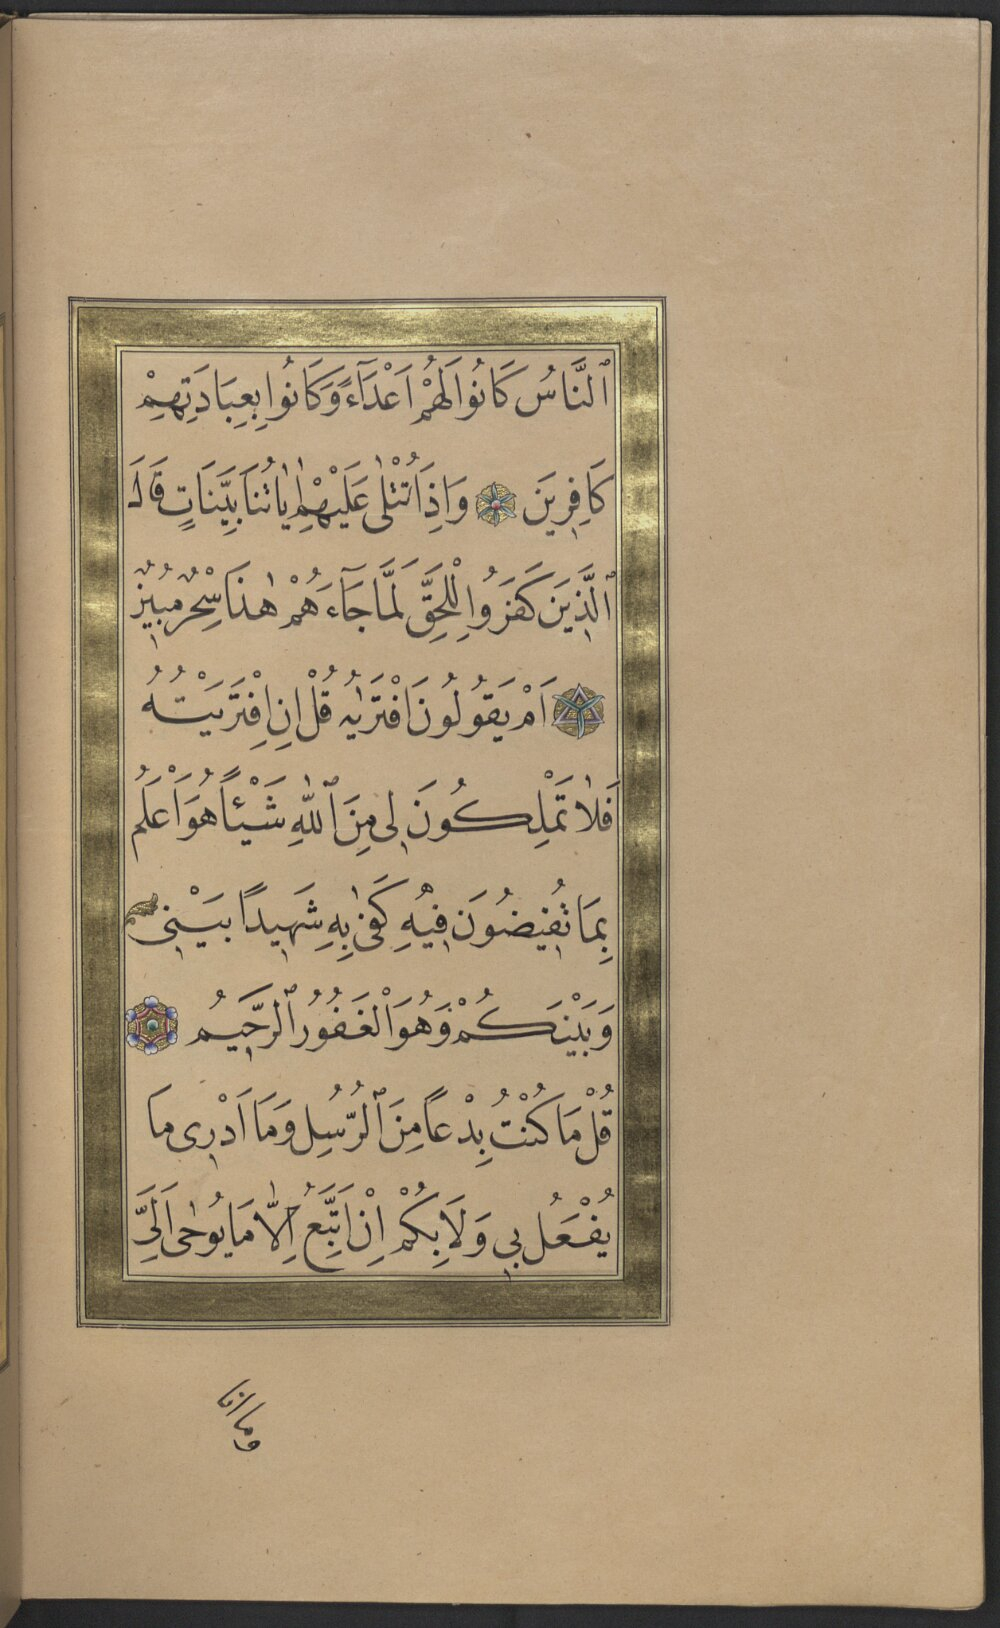 ٱلنَّاسُ كَانُوا لَهُمْ اَعْدَٓاءً وَكَانُوا بِعِبَادَتِهِمْ
كَافِرِينَ وَاِذَا تُتْلٰى عَلَيْهِمْ اٰيَاتُنَا بَيِّنَاتٍ قَالَ
ٱلَّذِينَ كَفَرُوا لِلْحَقِّ لَمَّا جَٓاءَهُمْ هٰذَا سِحْرٌ مُبِينٌ
اَمْ يَقُولُونَ افْتَرٰيهُ قُلْ اِنِ افْتَرَيْتُهُ
فَلَا تَمْلِكُونَ لِى مِنَ ٱللّٰهِ شَيْئًا هُوَ اَعْلَمُ
بِمَا تُفِيضُونَ فِيهِ كَفٰى بِهِ شَهِيدًا بَيْنِى
وَبَيْنَكُمْ وَهُوَ الْغَفُورُ ٱلرَّحِيمُ
قُلْ مَا كُنْتُ بِدْعًا مِنَ ٱلرُّسُلِ وَمَا اَدْرِى مَا
يُفْعَلُ بِى وَلَا بِكُمْ اِنْ اَتَّبِعُ اِلَّا مَا يُوحٰى اِلَىَّ
وما انا